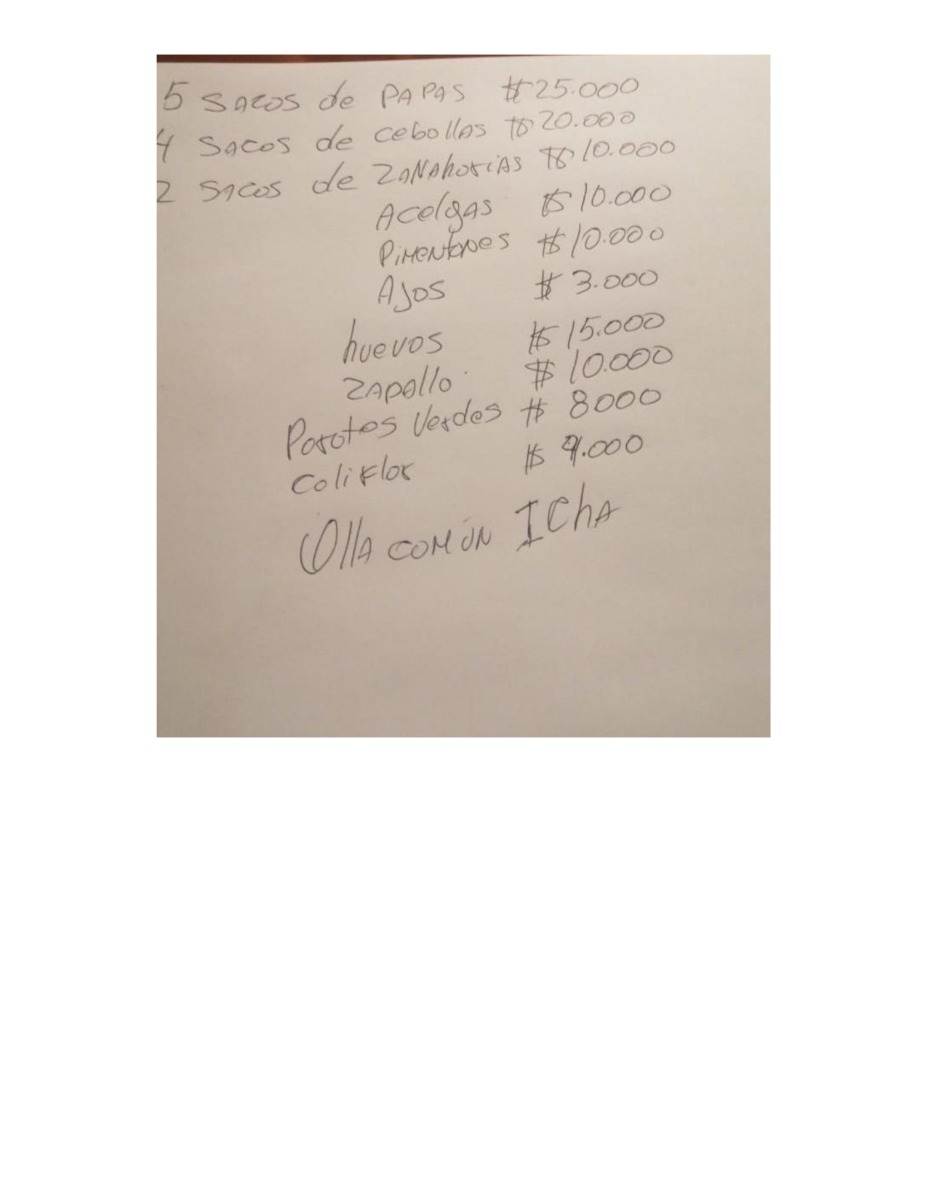 5 Sacos de PAPAS $25.000
4 Sacos de cebollas $20.000
2 Sacos de ZANAhorias $10.000
Acelgas $10.000
Pimentones $10.000
Ajos $3.000
huevos $15.000
Zapallo $10.000
Porotos Verdes $8000
Coliflor $9.000
Olla común Icha